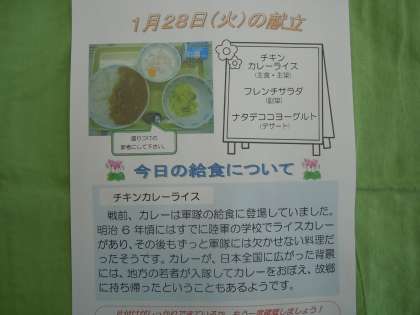 1月28日(火)の献立
チキン
カレーライス
(主食・主菜)
フレンチサラダ
(副菜)
ナタデココヨーグルト
(デザート)
盛りつけの
参考にして下さい。
今日の給食について
チキンカレーライス
戦前、カレーは軍隊の給食に登場していました。
明治6年頃にはすでに陸軍の学校でライスカレー
があり、その後もずっと軍隊には欠かせない料理だ
ったそうです。カレーが、日本全国に広がった背景
には、地方の若者が入隊してカレーをおぼえ、故郷
に持ち帰ったということもあるようです。